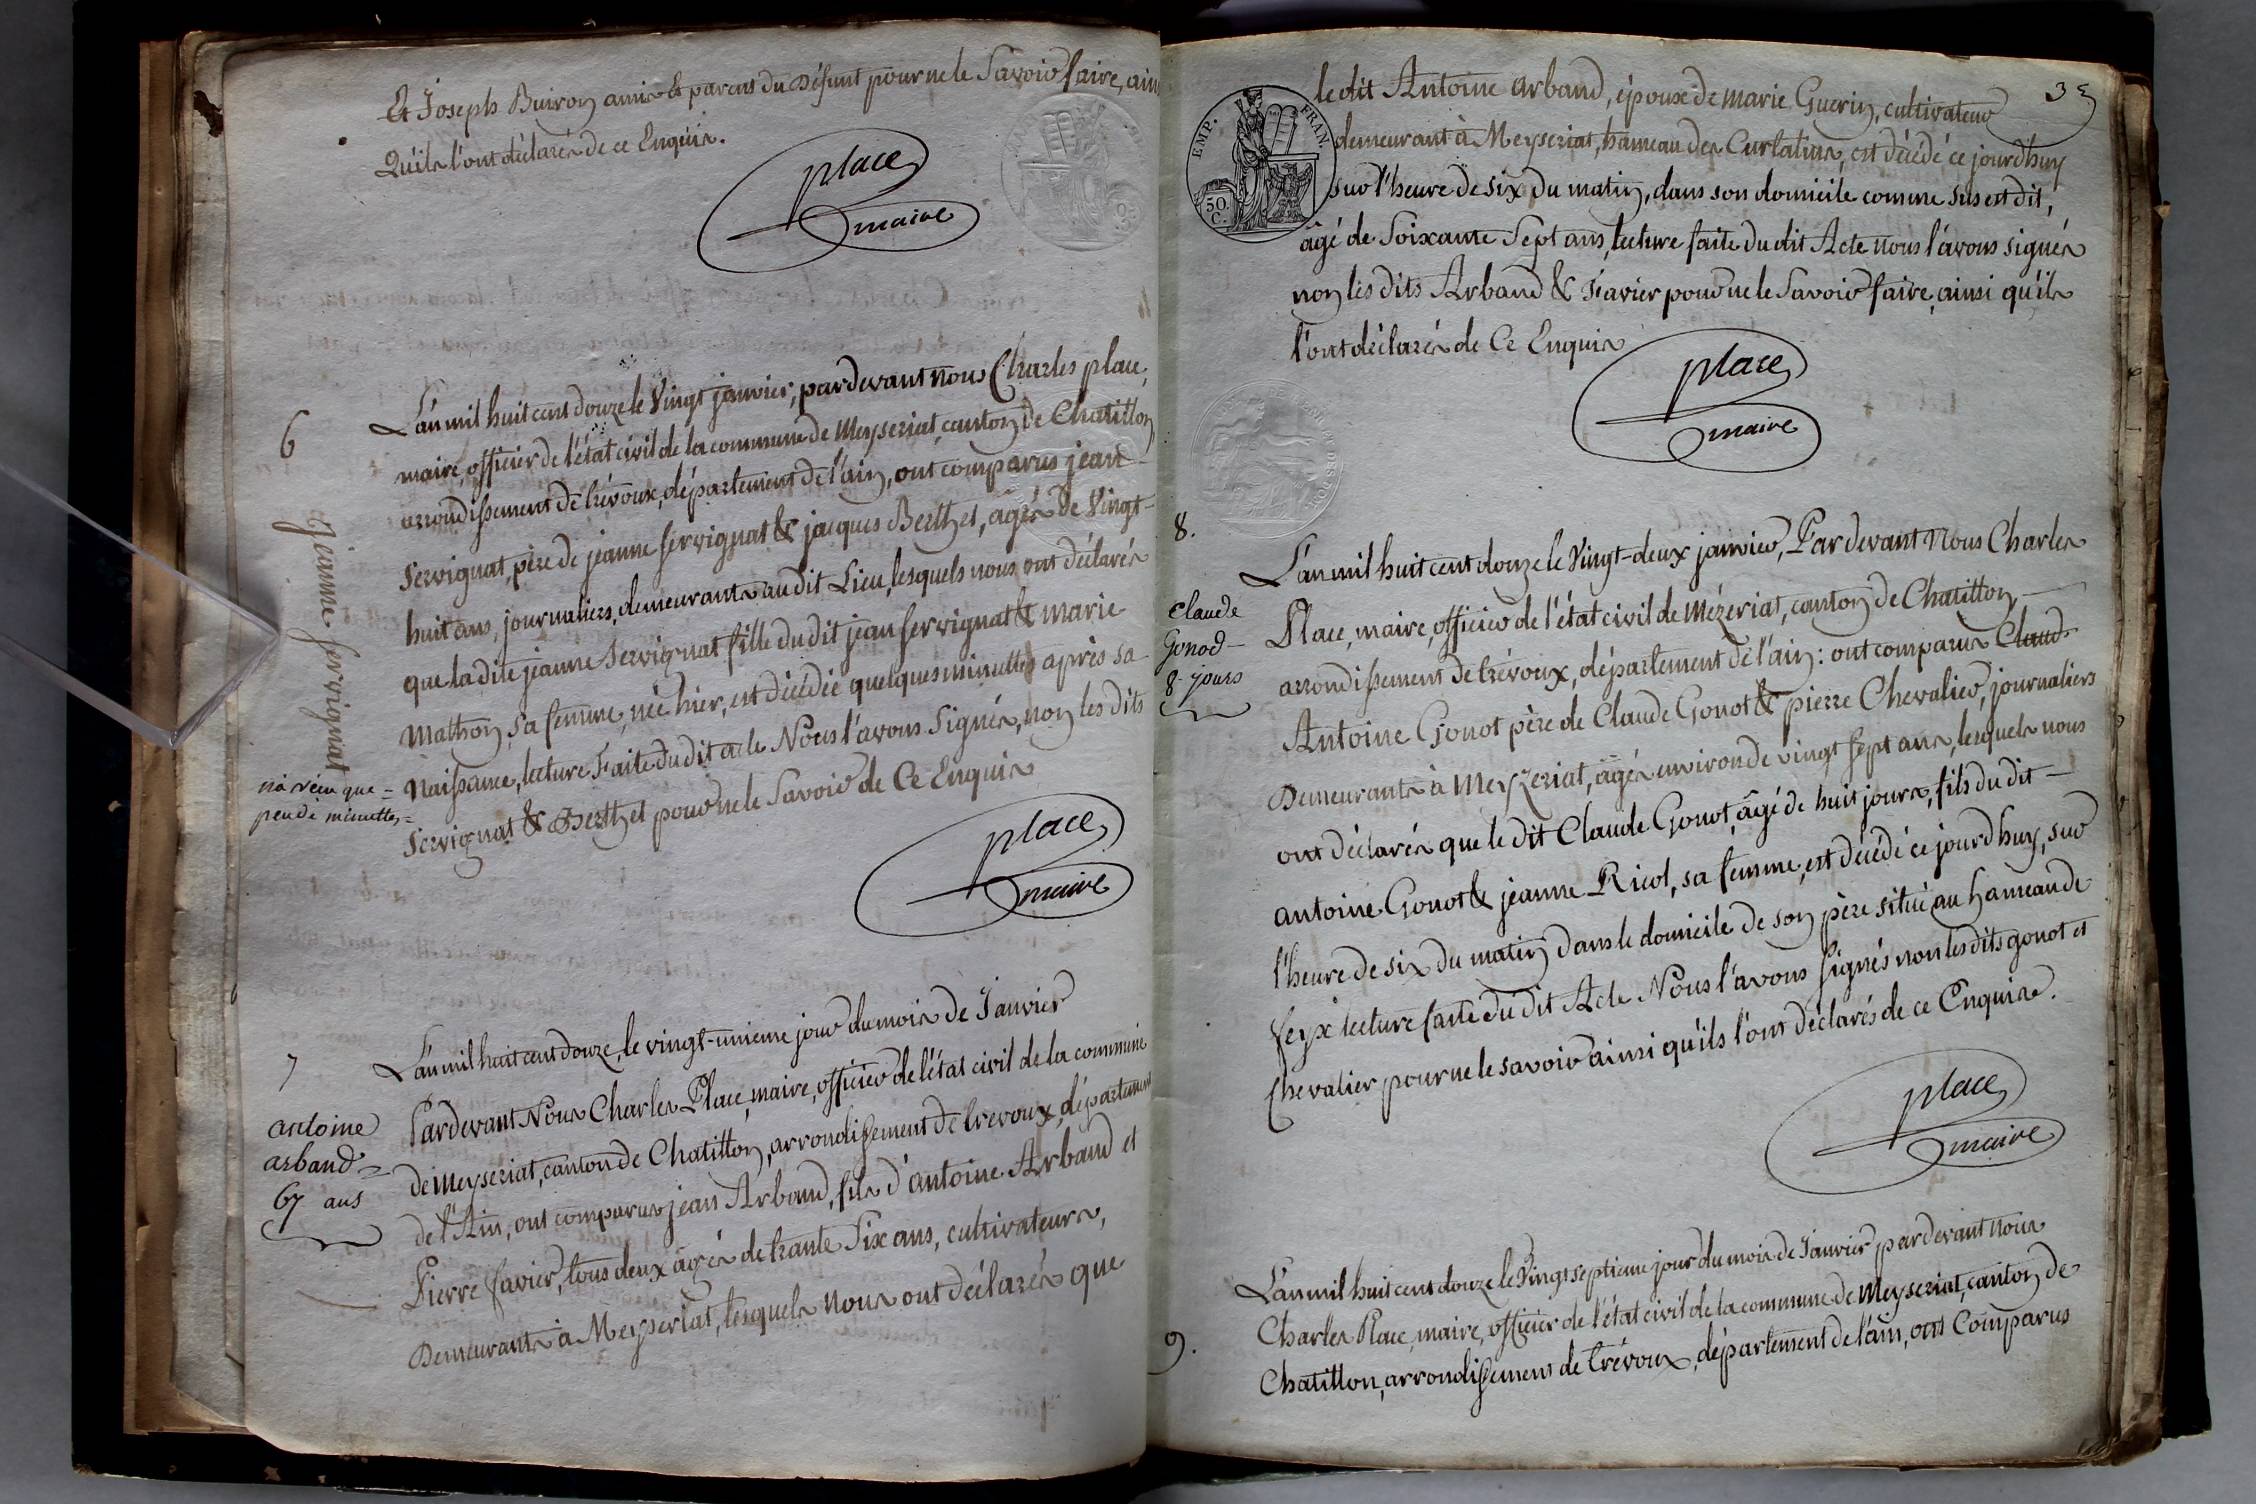 Et Joseph Buiron amis et parens du Défunt pour ne le Savoir faire, ain
Qu'ils l'ont déclarés de ce Enquis.
place
maire
6
Jeanne Servignat
n'a vécu que =
peu de minuttes =
L'an mil huit cent douze le Vingt janvier, pardevant nous Charles place,
maire, officier de l'état civil de la commune de Meyseriat, canton de Chatillon,
arrondissement de trévoux, département de l'ain, ont comparus jean
Servignat, père de jeanne Servignat & jacques Berthet, agés de Vingt-
huit ans, journaliers, demeurants audit Lieu, lesquels nous ont déclarés
que la dite jeanne Servignat fille du dit jean Servignat & marie
Mathon, sa femme, née hier, est décédée quelques minuttes après sa
Naissance, lecture Faite du dit acte Nous l'avons Signés, non les dits
Servignat & Berthet pour ne le Savoir de Ce Enquis
place
maire
7
antoine
arband =
67 ans
L'an mil huit cent douze, le vingt-unieme jour du mois de Janvier
Pardevant Nous Charles Place, maire, officier de l'état civil de la commune
de Meyseriat, canton de Chatillon, arrondissement de trevoux, département
de l'Ain, ont comparus jean Arband, fils d'antoine Arband et
Pierre favier, tous deux agés de trante Six ans, cultivateurs,
Demeurants à Meyseriat, lesquels nous ont déclarés que
35
EMP. FRAN.
50 C.
le dit Antoine arband, époux de marie Guerin, cultivateur
demeurant à Meyseriat, hameau des Curtatins, est décédé ce jourdhuy
sur l'heure de six du matin, dans son domicile comme sus est dit,
âgé de Soixante Sept ans, lecture faite du dit Acte nous l'avons signés
non les dits Arband & Favier pour ne le Savoir faire, ainsi qu'ils
l'ont déclarés de Ce Enquis
place
maire
8.
claude
Gonod -
8 jours
L'an mil huit cent douze le Vingt-deux janvier, Pardevant Nous Charles
Place, maire, officier de l'état civil de Mézeriat, canton de Chatillon, —
arrondissement de trévoux, département de l'ain : ont comparus Claud
Antoine Gonot père de Claude Gonot & pierre Chevalier, journaliers
Demeurants à Meyzeriat, agés environ de vingt sept ans, lesquels nous
ont déclarés que le dit Claude Gonot, âgé de huit jours, fils du dit —
antoine Gonot & jeanne Ricol, sa femme, est décédé ce jourd'huy, sur
l'heure de six du matin dans le domicile de son père situé au hameau de
feyx lecture faite du dit Acte Nous l'avons signés non les dits gonot et
Chevalier pour ne le savoir ainsi qu'ils l'ont déclarés de ce Enquise.
place
maire
9.
L'an mil huit cent douze le Vingt septieme jour du mois de Janvier pardevant nous
Charles Place, maire, officier de l'état civil de la commune de Meyseriat, canton de
Chatillon, arrondissement de trévoux, département de l'ain, ont Comparus